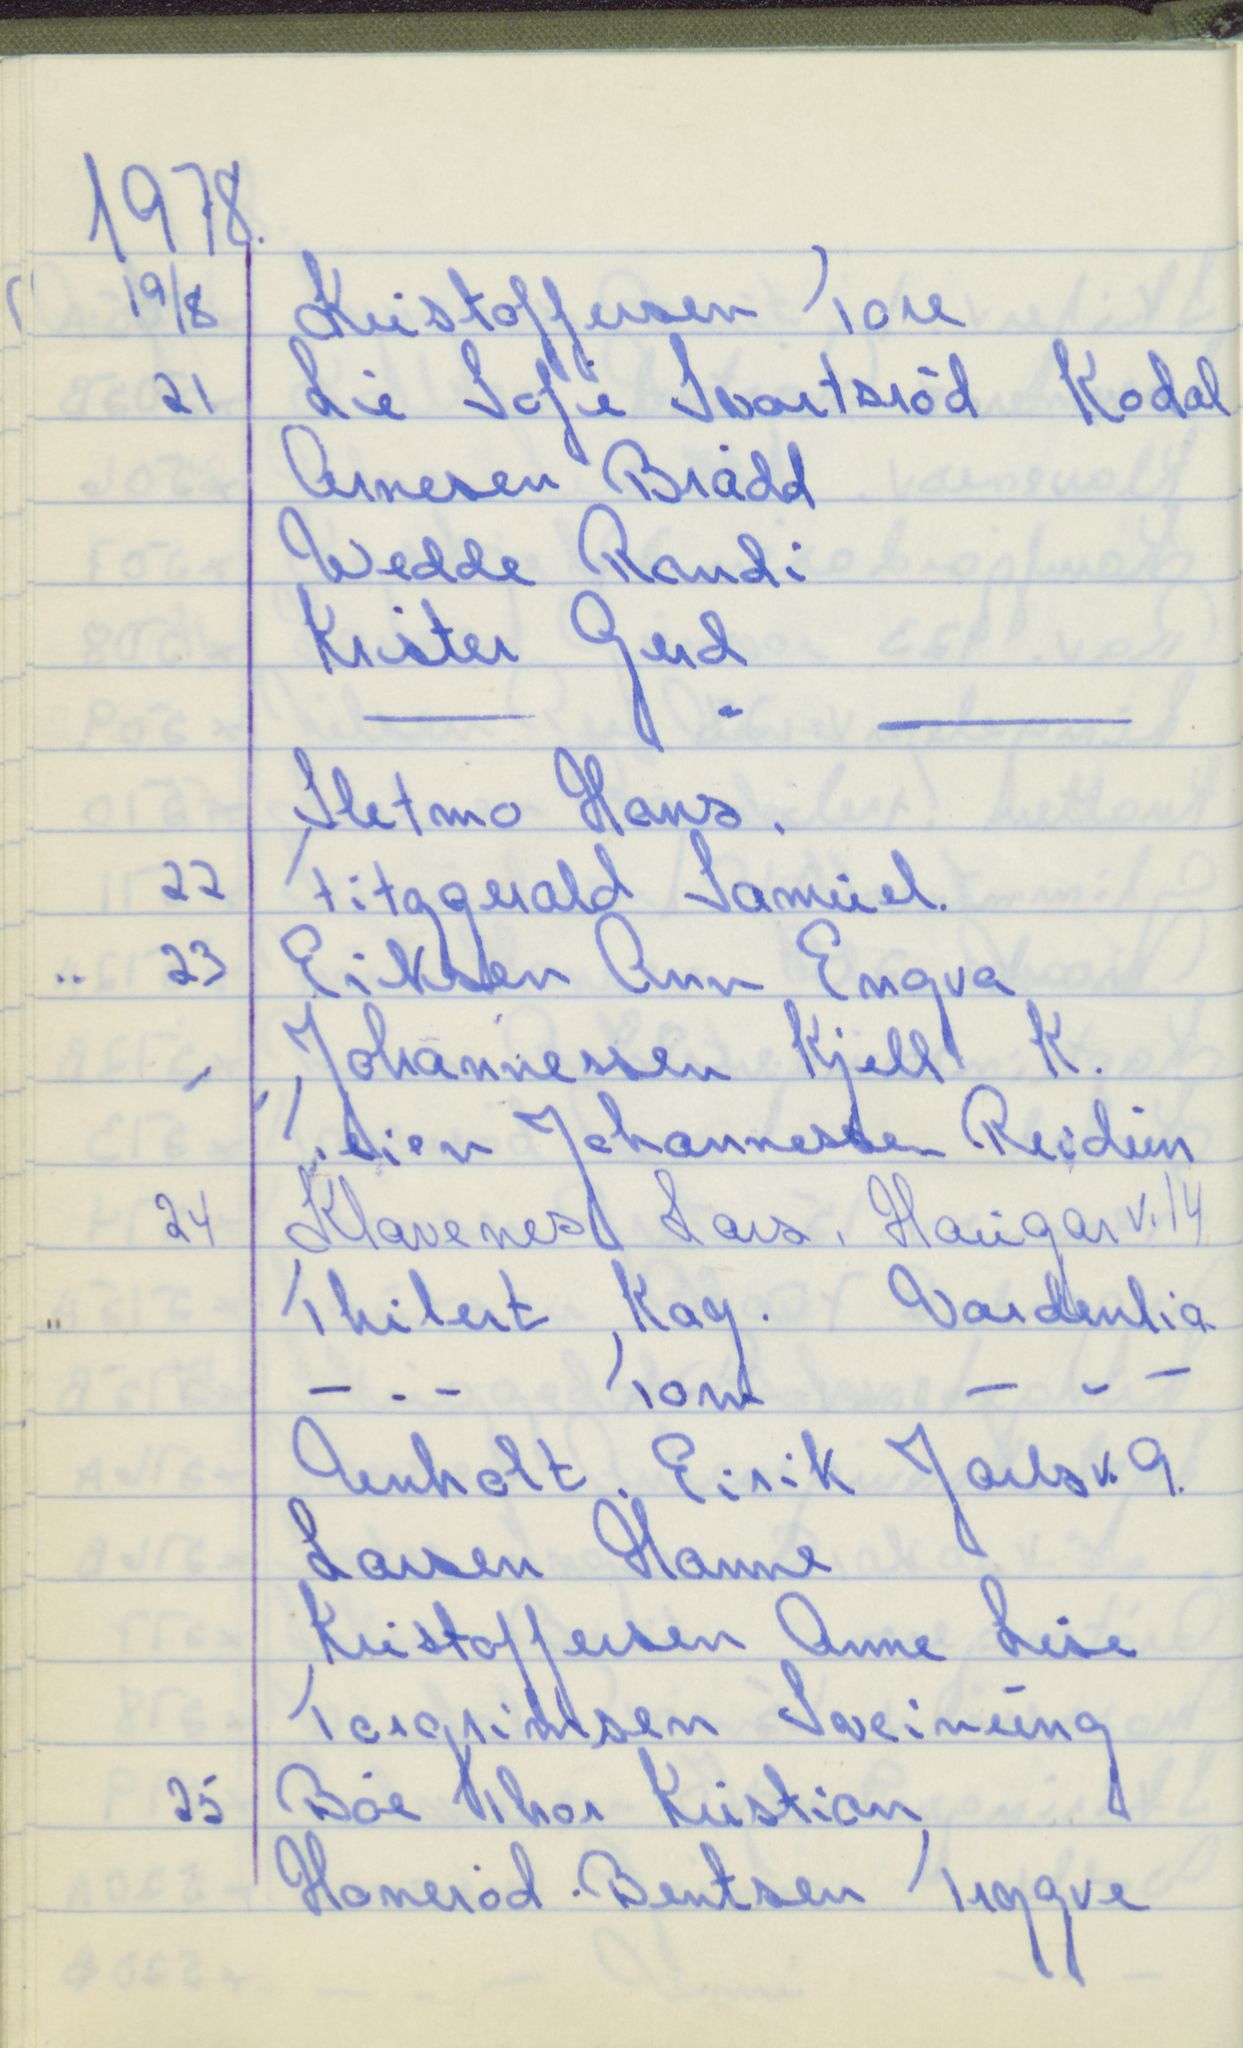 1978.
19/8 Kristoffersen Tore
21 Lie Sofie Svartsrød Kodal
Arnesen Brådd
Wedde Randi
Krister Gerd
— " —
Sletmo Hans.
22 Fitzgerald Samuel.
.. 23 Eiksen Ann Engva
Johannessen Kjell K.
Johannessen Reidun
24 Klavenes Lars. Haugar v. 14
" Thilert Kay. Vardenlia
- . - Tom - - -
Arnholt. Eirik Jarls v. 9.
Larsen Hanne
Kristoffersen Anne Lise
Torgrimsen Sveinung
25 Bøe Thor Kristian
Honerød. Bentsen Tryggve